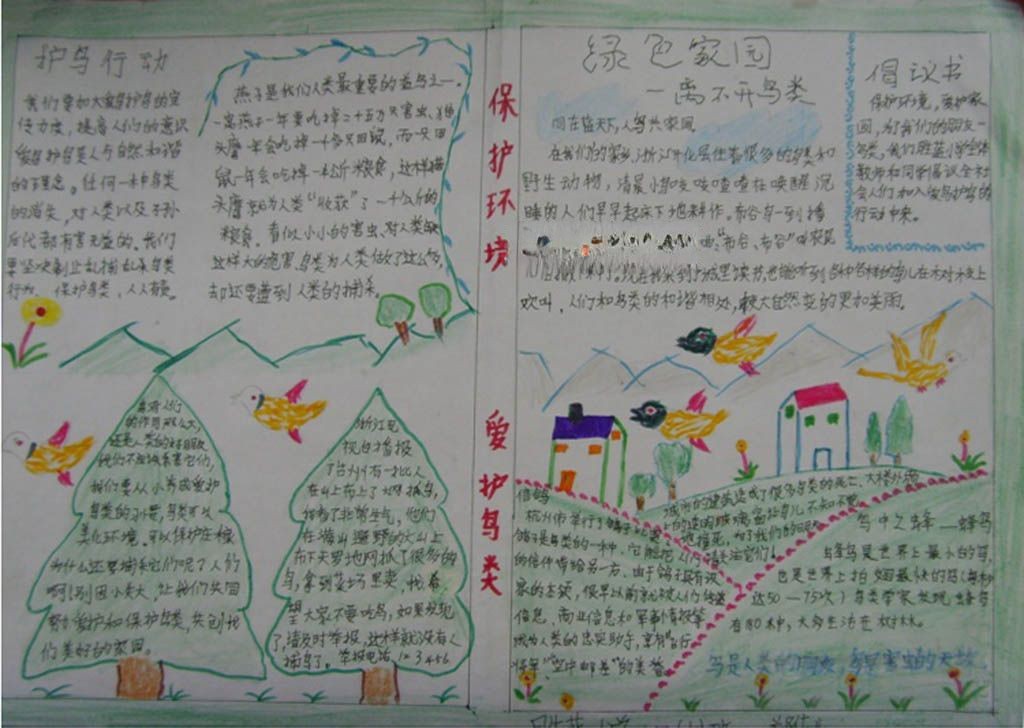 护鸟行动
我们要加大爱鸟护鸟的宣
传力度，提高人们的意识
爱鸟护鸟是人与自然和谐
的理念。任何一种鸟类
的消失，对人类以及子孙
后代都有害无益的。我们
要坚决制止乱捕乱杀鸟类
行为，保护鸟类，人人有责。
燕子是我们人类最重要的益鸟之一。
一窝燕子一年要吃掉二十五万只害虫、猫
头鹰一年会吃掉一千多只田鼠，而一只田
鼠一年会吃掉一公斤粮食，这样猫
头鹰就为人类“收获”了一千公斤的
粮食。看似小小的害虫，对人类
这样大的危害，鸟类为人类做了这么多，
却还要遭到人类的捕杀。
保护环境
爱护鸟类
绿色家园
一离不开鸟类
同在蓝天下，人鸟共家园。
在我们的家乡，浙江开化居住着很多的鸟类和
野生动物，清晨小鸟叽叽喳喳在唤醒沉
睡的人们早早起床下地耕作。布谷鸟一到播
“布谷、布谷”
现在我来到上城里读书，也能听到各种各样的鸟儿在木对木支上
欢叫，人们和鸟类的和谐相处，让大自然变的更加美丽。
倡议书
保护环境，爱护家
园，为了我们的朋友一
鸟类，我们胜蓝小学全体
教师和同学倡议全社
会人们加入爱鸟护鸟的
行动中来。
的作用那么大，
还是人类的好朋友
我们不应该杀害它们，
我们要从小养成爱护
鸟类的习惯，鸟类可以
美化环境。可以保护庄稼
为什么还要捕杀它们呢？人们
啊！别因小失大，让我们共同
努力爱护和保护鸟类，共创我
们美好的家园。
浙江卫
视白播报
了台州有一批人
在山上布上了大网抓鸟，
我看了非常生气，他们
在满山遍野的大山上
布下天罗地网抓了很多的
鸟，拿到菜场里卖，我希
望大家不要吃鸟，如果发现
了请及时举报，这样就没有人
捕鸟了。举报电话 123456
信鸽
杭州市举行了鸽子比赛
鸽子是鸟类的一种，它能把人们
的信件带给另一方、由于鸽子有
家的本领，很早以前就被人们传送
信息，商业信息和军事情报等
成为人类的忠实助手，享有“飞行
“空中邮差”的美誉。
城市的建筑造成了很多鸟类的死亡，大楼外墙
上的玻璃窗让鸟儿不知不觉
地撞死，为了我们的朋友
请关注它们！
鸟中之蜂—蜂鸟
蜂鸟是世界上最小的鸟，
也是世界上拍翅最快的鸟（每秒
达50—75次）鸟类学家发现蜂鸟
有80种，大多生活在树林。
鸟是人类的朋友，鸟是害虫的天敌